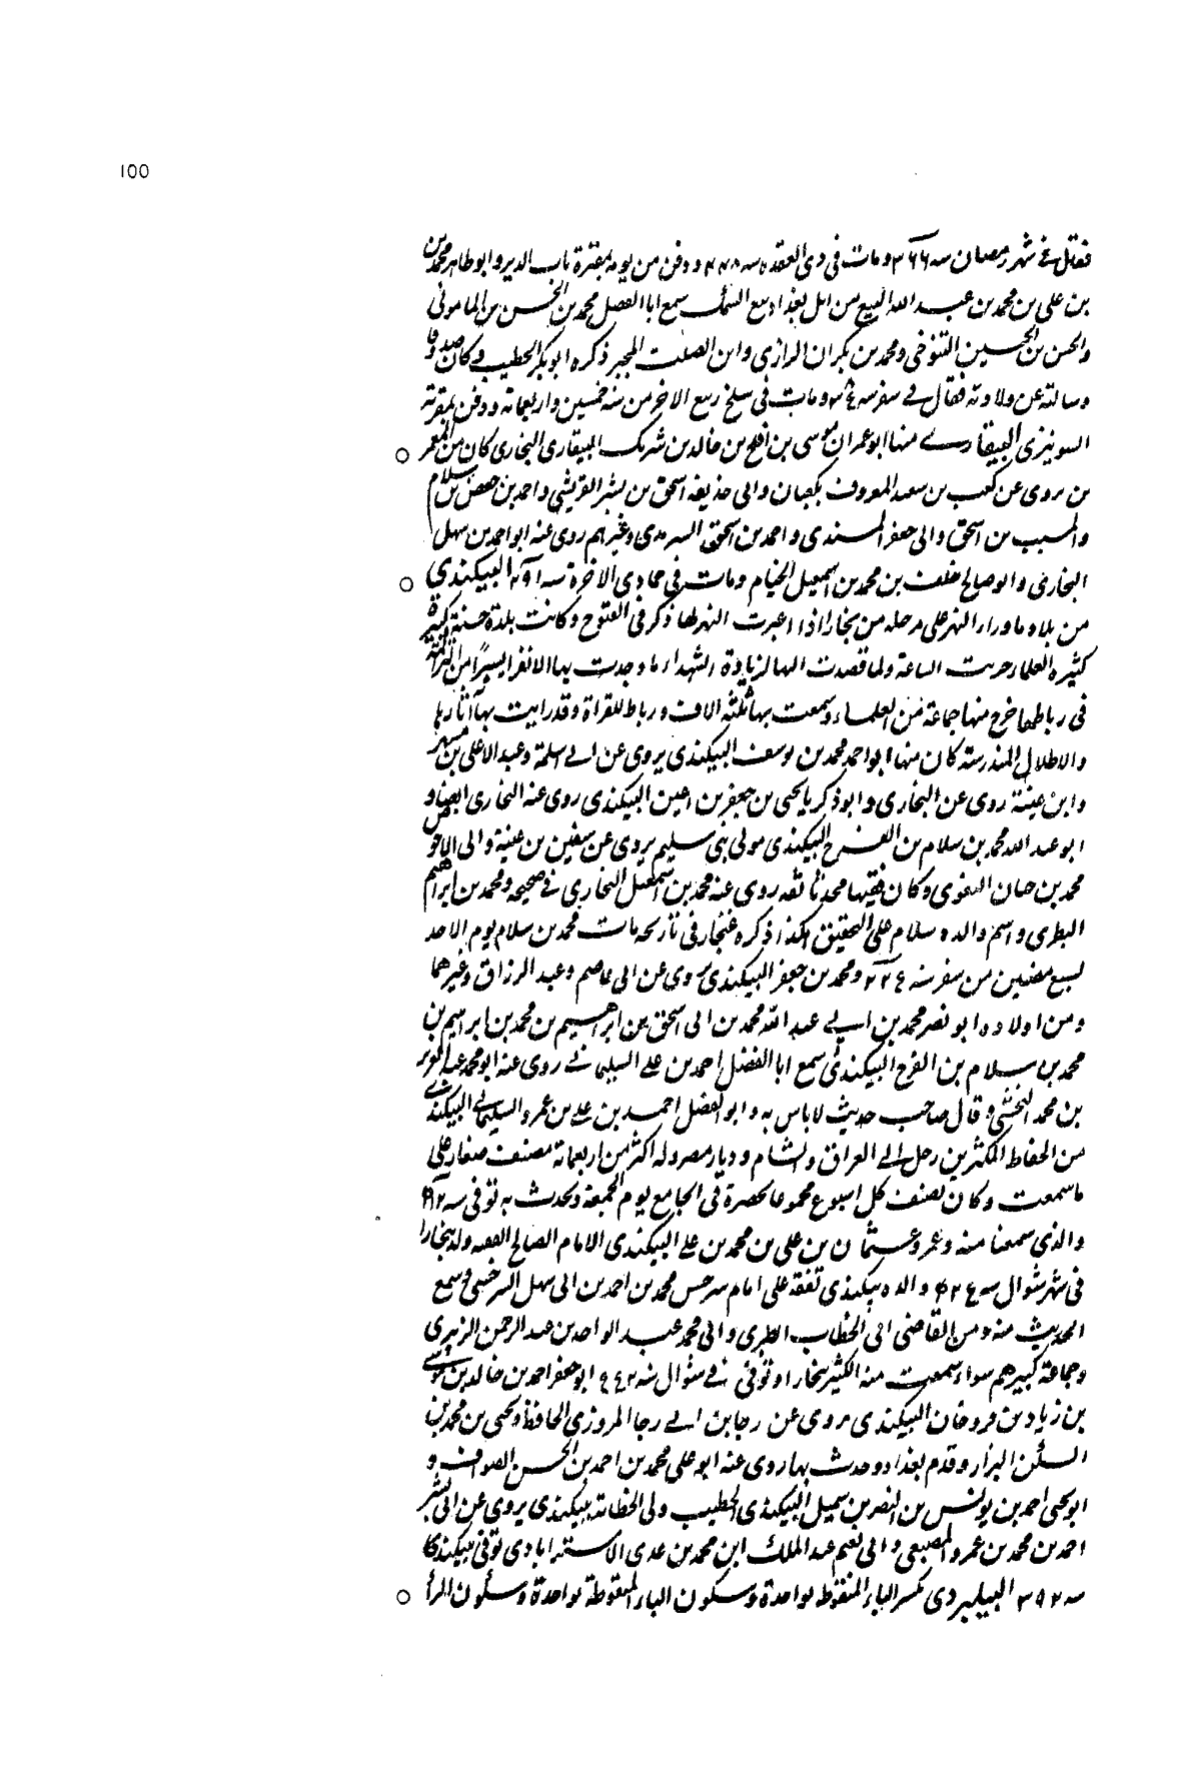 100
فقال في شهر رمضان سه ٣٦٦ ومات في ذي القعده سه ٤٣٨ ودفن من يومه بمقبرة باب الدير وابو طاهر محمد بن
بن علي بن محمد بن عبد الله البيع من اهل بغداد بيع السمك سمع ابا الفضل محمد بن الحسن بن الماموني
والحسن بن الحسين التنوخي ومحمد بن بكران الرازي وابن الصلت المجبر ذكره ابو بكر الخطيب وكان صدوقا
وسالته عن ولادته فقال في سفر ومات في سلخ ربيع الاخر من سنه خمسين واربعماية ودفن بمقبرة
الشونيزي البيقاري منها ابو عمران موسى بن افلح بن خالد بن شريك البيقاري البخاري كان من المعمر
ين يروي عن كعب بن سعيد المعروف بكعبان وابي حذيفه اسحق بن بشر القريشي واحمد بن حفص بن سلام
والمسيب بن اسحق وابي جعفر المسندي واحمد بن اسحق السرمدي وغيرهم روى عنه ابو احمد بن سهل
البخاري وابو صالح خلف بن محمد بن اسمعيل الخيام ومات في جمادي الاخرة سه ٢٩١ البيكندي
من بلاد ماوراء النهر على مرحله من بخارا اذا اعبرت النهر لها ذكر في الفتوح وكانت بلدة حسنة كبيرة
كثيره العلماء خربت الساعة ولما قصدت اليها لزيادة الشهداء ما وجدت بها الا نفرا يسيرًا من التركمة
في رباطها خرج منها جماعة من العلماء وسمعت بها ثلثة الاف رباط للقراة وقد رايت بها آثارها
والاطلال المندرسة كان منها ابو احمد محمد بن يوسف البيكندي يروي عن ابي اسلمة وعبد الاعلى بن مسهر
وابن عيينة روى عن البخاري وابو ذكريا يحيى بن جعفر بن اعين البيكندي روى عنه البخاري ايضا و
ابو عبد الله محمد بن سلام بن الفرج البيكندي مولى بني سليم يروي عن سفين بن عيينة وابي الاحوص
محمد بن حيان البغوي وكان فقيها محدثا ثقه روى عنه محمد بن اسمعيل البخاري في صحيحه ومحمد بن ابراهيم
البطري واسم والده سلام على التحقيق هكذا ذكره غنجار في تاريخه مات محمد بن سلام يوم الاحد
لسبع مضين من سفر سنه ٢٢٤ ومحمد بن جعفر البيكندي يروى عن ابي عاصم وعبد الرزاق وغيرهما
ومن اولاده ابو نصر محمد بن ابي عبد الله محمد بن ابي اسحق بن ابراهيم بن محمد بن ابراهيم بن
محمد بن سلام بن الفرج البيكندي سمع ابا الفضل احمد بن علي السليماني روى عنه ابو محمد عبد العزيز
بن محمد النخشبي وقال صاحب حديث لا باس به وابو الفضل احمد بن علي بن عمرو السليماني البيكندي
من الحفاظ المكثرين رحل الى العراق والشام وديار مصر وله اكثر من اربعماية مصنف صغار على
ما سمعت وكان يصنف كل اسبوع مجموعا يحضره في الجامع يوم الجمعة ويحدث به توفي سه ٤١٢
والذي سمعنا منه وعمرو عثمان بن علي بن محمد بن علي البيكندي الامام الصالح الفقيه ولد ببخارا
في شهر شوال سه ووالده بيكندي تفقه على امام سرخس محمد بن احمد بن ابي سهل السرخسي وسمع
الحديث منه ومن القاضي ابي الخطاب الطبري وابي محمد عبد الواحد بن عبد الرحمن الزبيري
وجماعة كبيرهم سواء سمعت منه الكثير ببخارا وتوفي في شوال سنه ابو جعفر احمد بن خالد بن موسى
بن زياد بن فروخان البيكندي يروي عن رجا بن ابي رجا المروزي الحافظ ويحيى بن محمد بن
السكن البزار وقدم بغداد وحدث بها روى عنه ابو علي محمد بن احمد بن الحسن الصواف و
ابو يحيى احمد بن يونس بن النضر بن سميل البيكندي الخطيب ولي الخطابة ببيكندي يروي عن ابي بشر
احمد بن محمد بن عمرو المصعبي وابي نعيم عبد الملك ابن محمد بن عدي الاستراباذي توفي ببيكند كا
سه ٣٩٢ البيلبردي بكسر الباء المنقوط بواحدة وسكون الياء المنقوطة بواحدة وسكون الرأ